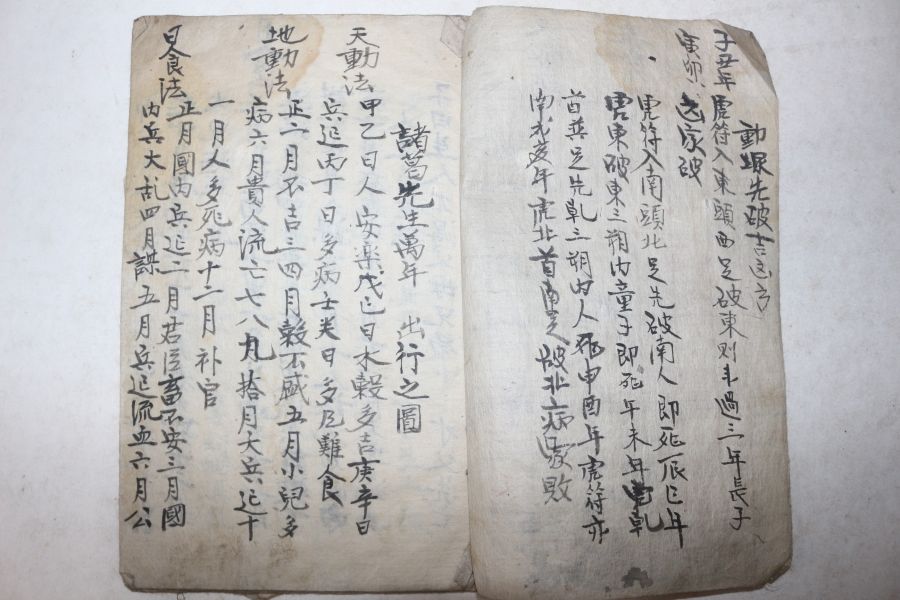 動塚先破吉凶方
子丑年虎符入東頭西足破東則不過三年長子
寅卯
家破
虎符入南頭北足先破南人即死辰巳年
東破東三朔內童子即死午未年
首 足先乾三朔內人死申酉年虎符亦
南 戌亥年虎北首南足破北病 家敗
諸葛先生萬年 出行之圖
天動法
甲乙日人安樂戊己日木穀多吉庚辛日
兵起丙丁日多病壬癸日多 難食
地動法
正二月不吉三四月穀不盛五月小兒多
病六月貴人流亡七八九拾月大兵起十
一月人多死病十二月补官
日食法
正月國內兵起二月君臣畜不安三月國
內兵大乱四月謀五月兵起流血六月公